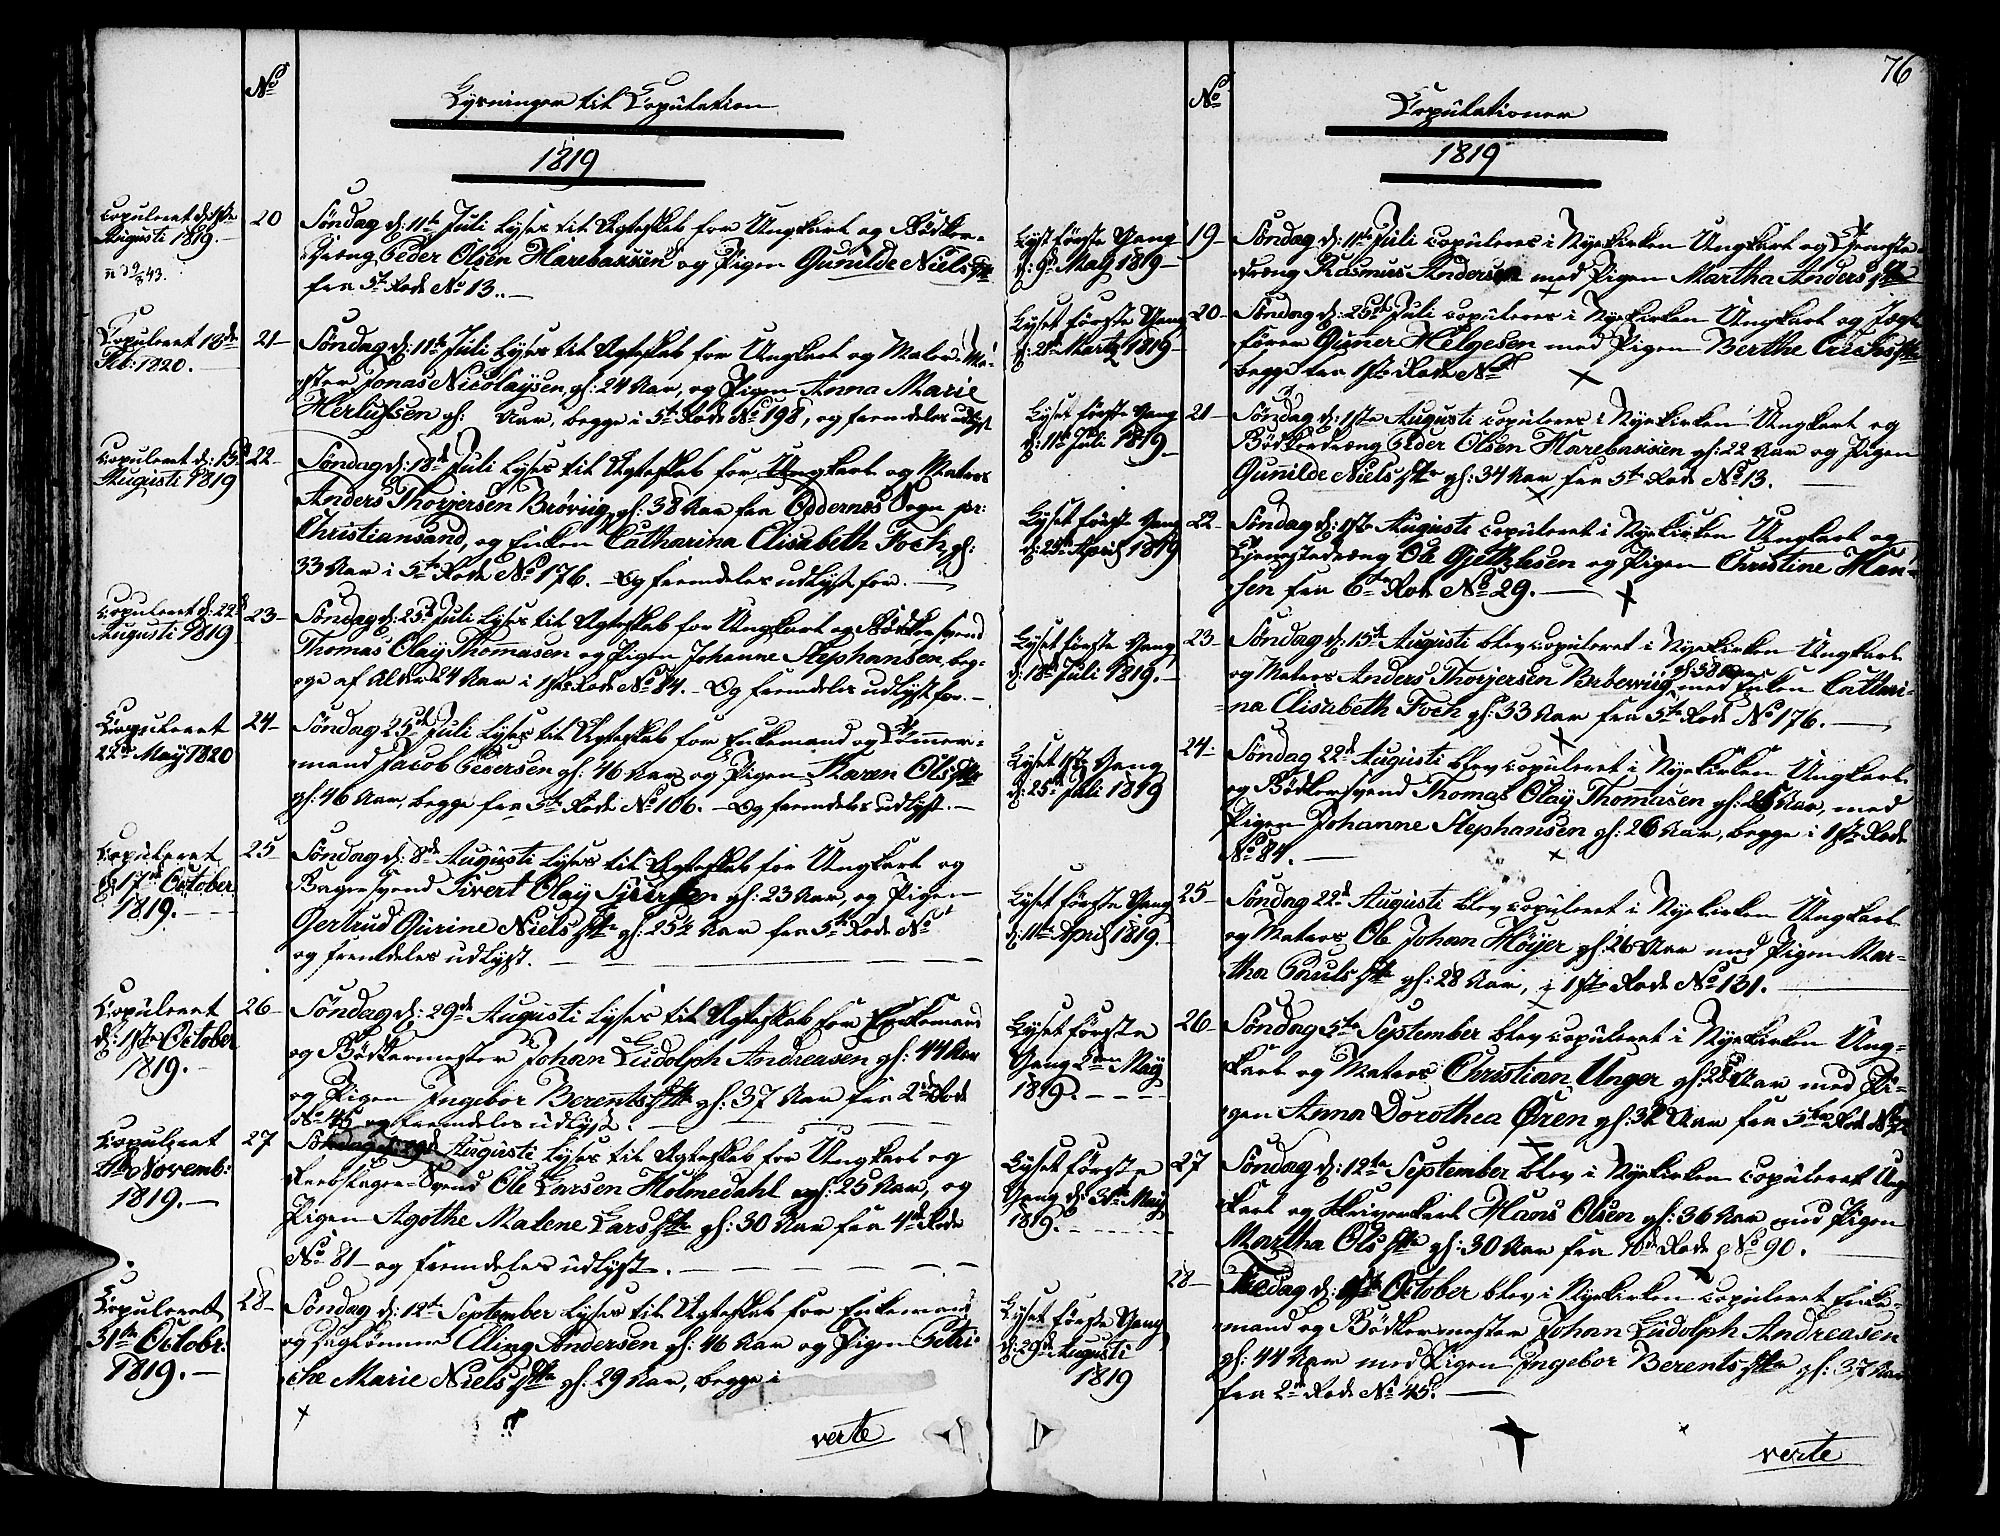 No
Lysninger til Copulation
1819
Copuleret d: 1ste
Augusti 1819.
20
Söndag d: 11te Juli lyses til Ægteskab for Ungkarl og Bödker-
dræng Peder Olsen Harebakken og Pigen Gunilde Nielsdtr
fra 5te Rode No 13. —
Copuleret 13de
Feb: 1820. —
21
Söndag d: 11te Juli lyses til Ægteskab for Ungkarl og Maler Me-
ster Jonas Nicolaysen, gl: 24 Aar, og Pigen Anna Marie
Herlufsen gl: Aar, begge i 5te Rode No 198, og fremdeles udlyst
Copuleret d: 15de
Augusti 1819
22
Söndag d: 18de Juli lyses til Ægteskab for Ungkarl og Matros
Anders Thorjersen Bröviig, gl: 38 Aar fra Oddernes Sogn pr:
Christiansand, og Enken Catharina Elisabeth Foch, gl:
33 Aar i 5te Rode No 176. — Og fremdeles udlyst for. —
Copuleret d: 22d
Augusti 1819
23
Söndag d: 25d Juli lyses til Ægteskab for Ungkarl og Bödkersvend
Thomas Olay Thomasen og Pigen Johanne Stephansen, beg-
ge af Alder 24 Aar i 1ste Rode No 84. — Og fremdeles udlyst for. —
Copuleret
22de May 1820
24
Söndag 25de Juli lyses til Ægteskab for Enkemand og Tömmer-
mand Jacob Pedersen gl: 46 Aar og Pigen Karen Olsdtr
gl: 46 Aar, begge fra 5te Rode No 106. — Og fremdeles udlyst. —
Copuleret
d: 17de October
1819. —
25
Söndag d: 8de Augusti lyses til Ægteskab for Ungkarl og
Bagersvend Sivert Olay Sjursen gl: 23 Aar, og Pigen
Gertrud Gurine Nielsdtr gl: 25½ Aar fra 5te Rode No
og fremdeles udlyst. —
Copuleret
d: 1ste October
1819. —
26
Söndag d: 29de Augusti lyses til Ægteskab for Enkemand
og Bödkermester Johan Ludolph Andreasen gl: 44 Aar
og Pigen Ingebor Berentsdtr gl: 37 Aar fra 2de Rode
No 45 og fremdeles udlyst. —
Copuleret
Novemb:
1819. —
27
Söndag d: 29d Augusti lyses til Ægteskab for Ungkarl og
Reebslager-Svend Ole Larsen Holmedahl gl: 25 Aar, og
Pigen Agothe Malene Larsdtr gl: 30 Aar fra 4de Rode
No 81 — og fremdeles udlyst. —
Copuleret
31te Octobr:
1819. —
28
Söndag d: 12te September lyses til Ægteskab for Enkemand
og Elling Andersen gl: 46 Aar og Pigen Petri-
che Marie Nielsdtr gl: 29 Aar, begge i
verte
76
No
Copulationer
1819
Lyst förste Gang
d: 9de May 1819 —
19
Söndag d: 11te Juli copuleres i Nyekirken Ungkarl og Tjeneste-
dræng Rasmus Andersen med Pigen Martha Andersdtr
Lyset förste Gang
d: Martz 1819 —
20
Söndag d: 25de Juli copuleres i Nyekirken Ungkarl og Jægt
förer Guner Helgesen med Pigen Berthe Erichsdtr
begge fra 1ste Rode No
Lyset förste Gang
d: 11te Juli 1819 —
21
Söndag d: 1ste Augusti copuleres i Nyekirken Ungkarl og
Bödkerdræng Peder Olsen Harebakken gl: 22 Aar og Pigen
Gunilde Nielsdtr gl: 34 Aar, fra 5te Rode No 13. —
Lyset förste Gang
d: 25de April 1819
22
Söndag d: 1ste Augusti copuleret i Nyekirken Ungkarl og
Tjenestedræng Ole Gjethlesen og Pigen Christine Han-
sen fra 6te Rode No 29. —
Lyset förste Gang
d: 18de Juli 1819. —
23
Söndag d: 15de Augusti blev copuleret i Nyekirken Ungkarl
og Matros Anders Thorjersen Bröeviig gl: 38 Aar med Enken Cathari-
na Elisabeth Foch gl: 33 Aar fra 5te Rode No 176. —
Lyset 1ste Gang
d: 25de Juli 1819
24
Söndag 22d Augusti blev copuleret i Nyekirken Ungkarl
og Bödkersvend Thomas Olay Thomasen gl: Aar, med
Pigen Johanne Stephansen gl: 26 Aar, begge i 1ste Rode
No 84. —
Lyset förste Gang
d: 11te April 1819. —
25
Söndag 22d Augusti blev copuleret i Nyekirken Ungkarl
og Matros Ole Johan Höyer gl: 26 Aar med Pigen Mar-
tha Poulsdtr gl: 28 Aar, i 1ste Rode No 131. —
Lyset förste
Gang 2den May
1819. —
26
Söndag 5te September blev copuleret i Nyekirken Ung-
karl og Matros Christian Unger gl: 28 Aar med Pi-
gen Anna Dorothea Ören gl: 32 Aar fra 5te Rode No
Lyset förste
Gang d: 31te May
1819. —
27
Söndag d: 12te September blev i Nyekirken copuleret Ung
karl og Skriverkarl Hans Olsen gl: 36 Aar med Pigen
Martha Olsdtr gl: 30 Aar fra Rode No 90. —
Lyset förste Gang
d: 29de Augusti
1819
28
Fredag d: 1ste October blev i Nyekirken copuleret Enke-
mand og Bödkermester Johan Ludolph Andreasen
gl: 44 Aar med Pigen Ingebor Berentsdtr gl: 37 Aar
fra 2de Rode No 45. —
verte